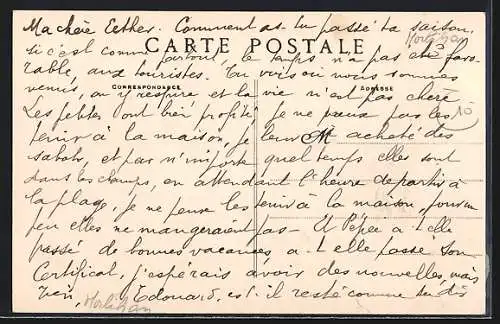 Ma chère Esther. Comment as-tu passé ta saison,
Morbihan
si c'est comme partout, le temps n'a pas été favo-
CARTE POSTALE
rable, aux touristes. Tu vois où nous sommes
CORRESPONDANCE ADRESSE
venus, on y respire et la vie n'est pas chère
Les petites ont bien profité, je ne peux pas les
10
tenir à la maison, je leur ai acheté des
M
sabots, et par n'importe quel temps elles sont
dans les champs, en attendant l'heure de partir à
la plage, je ne peux les tenir à la maison, pour un
peu elles ne mangeraient pas — Et Pépée a-t-elle
passé de bonnes vacances, a-t-elle passé son
Certificat, j'espérais avoir des nouvelles, mais
rien, Edouard, est-il resté comme tu dis
Morbihan